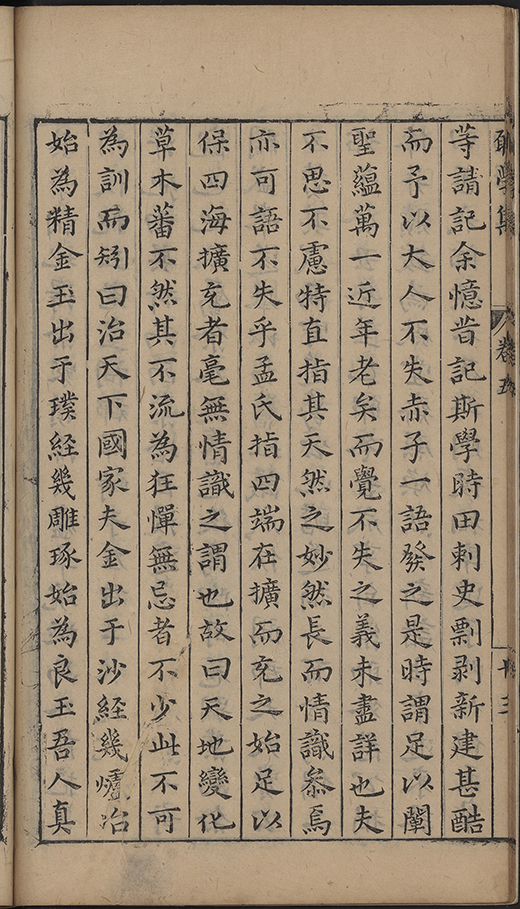 學集 卷五 十三
等請記余憶昔記斯學時田刺史剽剥新建甚酷
而予以大人不失赤子一語發之是時謂足以闡
聖蘊萬一近年老矣而覺不失之義未盡詳也夫
不思不慮特直指其天然之妙然長而情識叅焉
亦可語不失乎孟氏指四端在擴而充之始足以
保四海擴充者毫無情識之謂也故曰天地變化
草木蕃不然其不流為狂憚無忌者不少此不可
為訓而矧曰治天下國家夫金出于沙經幾燒冶
始為精金玉出于璞經幾雕琢始為良玉吾人真